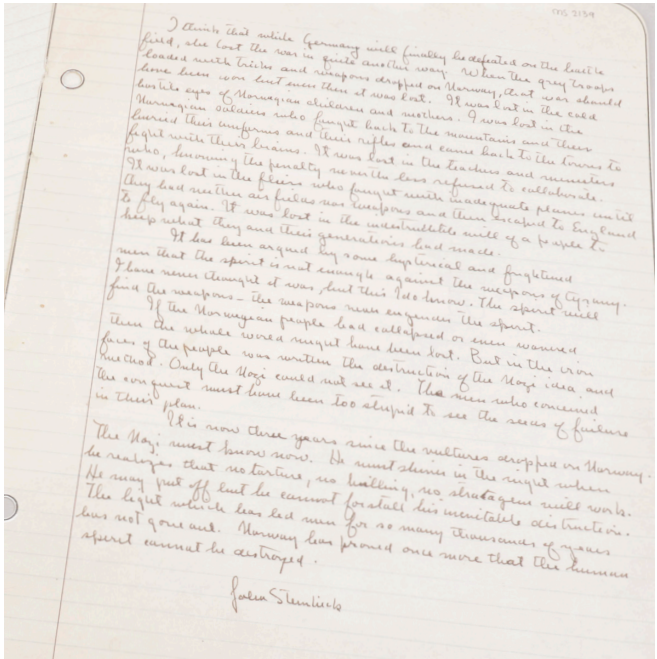 MS 2139
I think that while Germany will finally be defeated on the battle
field, she lost the war in quite another way. When the grey troops
loaded with tricks and weapons dropped on Norway, that war should
have been won but even then it was lost. It was lost in the cold
hostile eyes of Norwegian children and mothers. I was lost in the
Norwegian soldiers who fought back to the mountains and then
buried their uniforms and their rifles and came back to the towns to
fight with their brains. It was lost in the teachers and ministers
who, knowing the penalty never the less refused to collaborate.
It was lost in the fliers who fought with inadequate planes until
they had neither air fields nor weapons and then escaped to England
to fly again. It was lost in the indestructible will of a people to
keep what they and their generations had made.
It has been argued by some hysterical and frightened
men that the spirit is not enough against the weapons of tyranny.
I have never thought it was, but this I do know. The spirit will
find the weapons — the weapons never engender the spirit.
If the Norwegian people had collapsed or even wavered
then the whole world might have been lost. But in the iron
faces of the people was written the destruction of the Nazi idea and
method. Only the Nazi could not see it. The men who conceived
the conquest must have been too stupid to see the seeds of failure
in their plan.
It is now three years since the vultures dropped on Norway.
The Nazi must know now. He must shiver in the night when
he realizes that no torture, no killing, no stratagem will work.
He may put off but he cannot forstall his inevitable destruction.
The light which has led men for so many thousands of years
has not gone out. Norway has proved once more that the human
spirit cannot be destroyed.
John Steinbeck